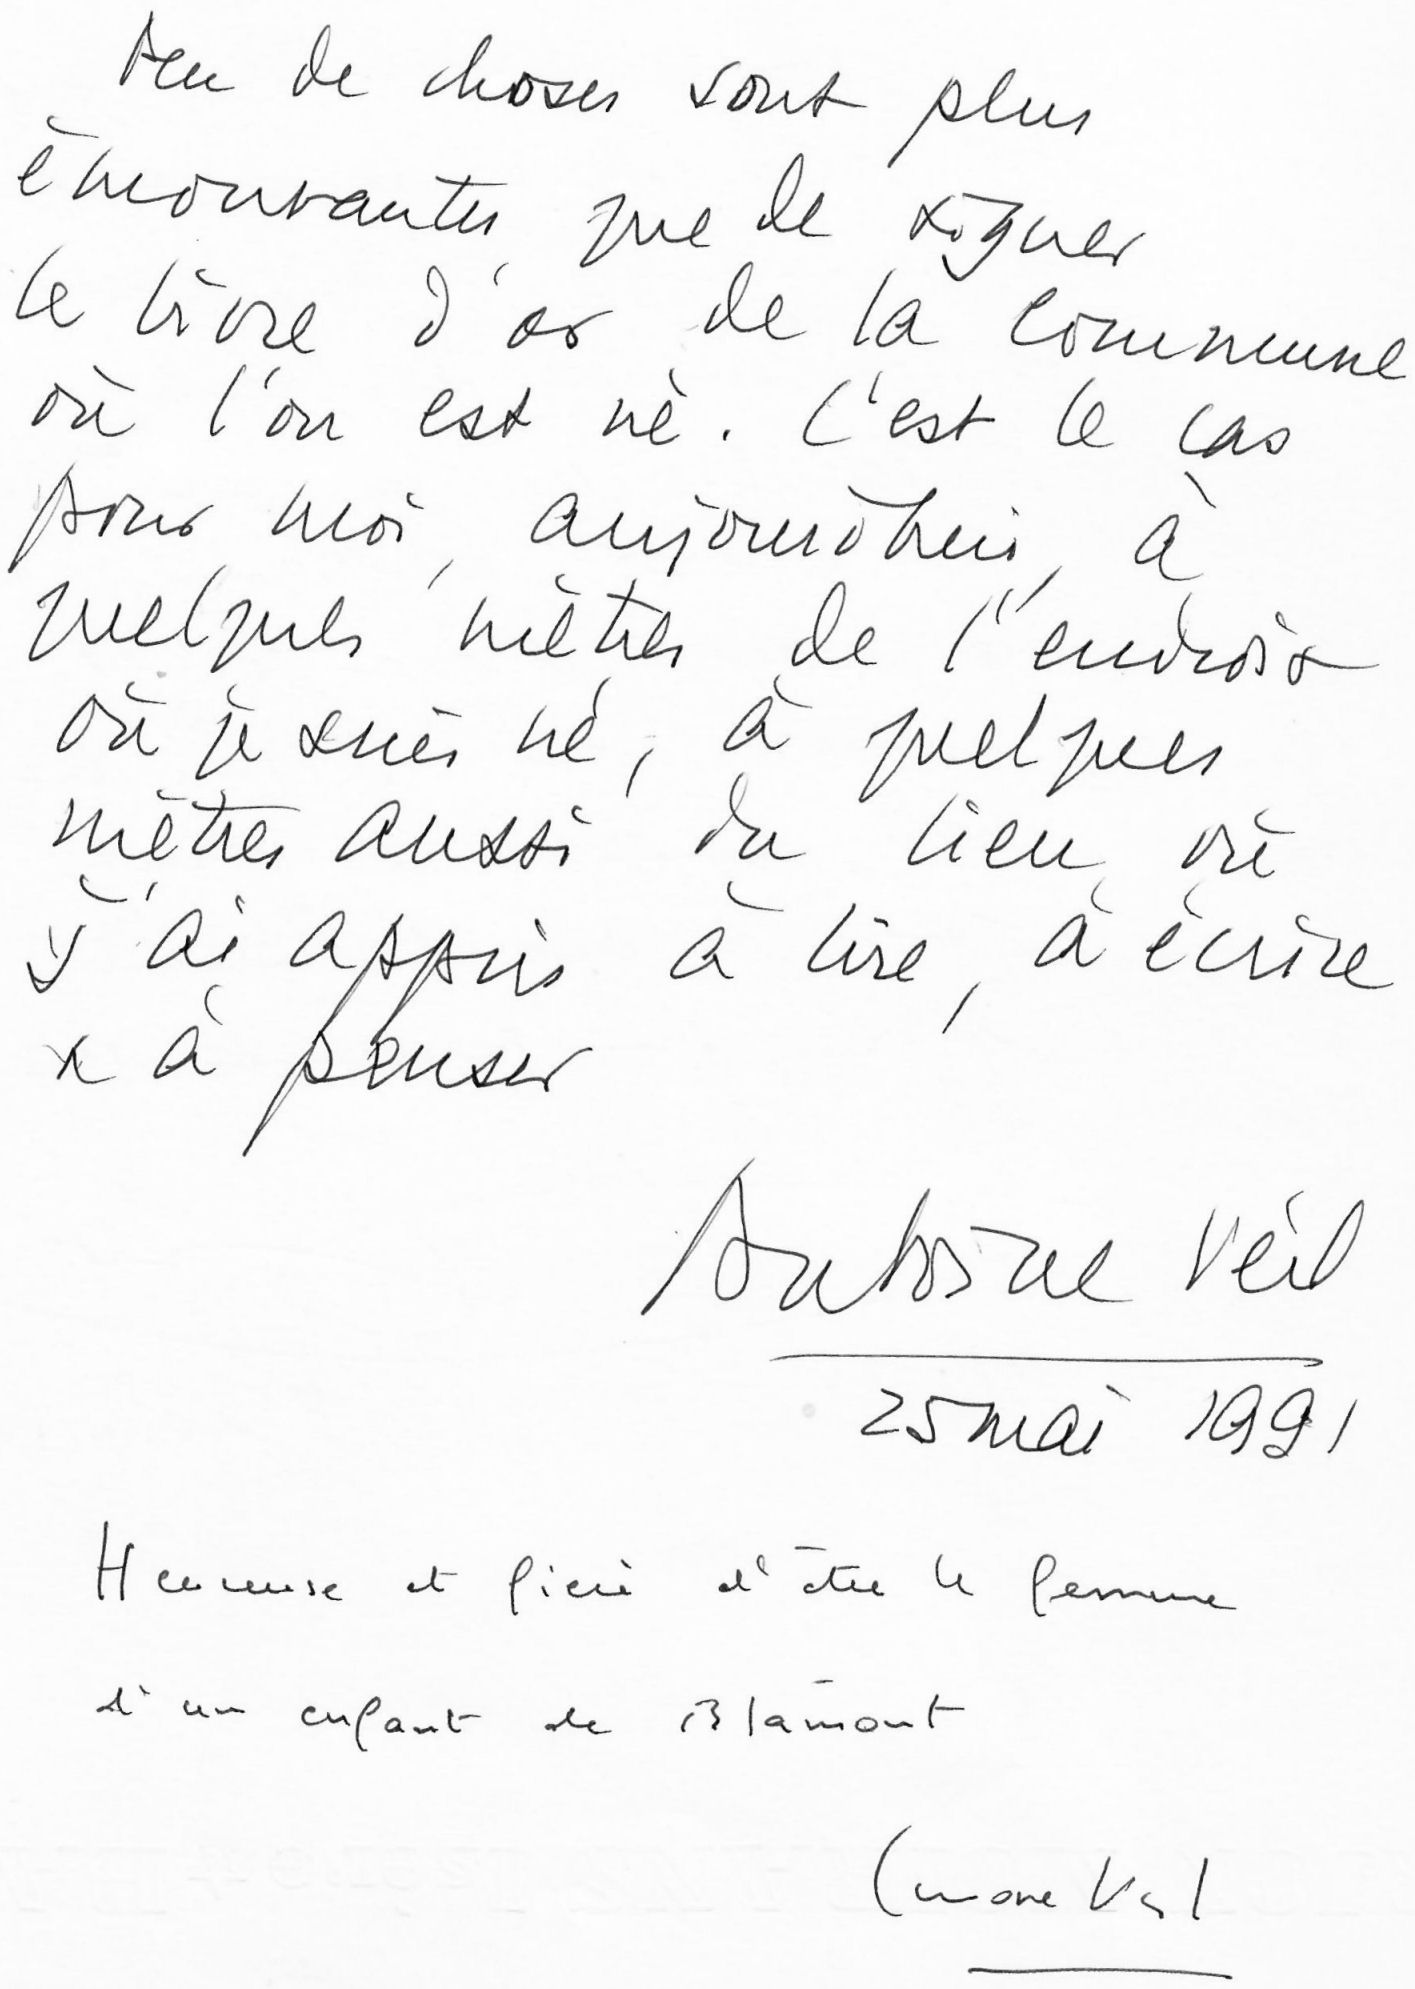 Peu de choses sont plus
émouvantes que de signer
le livre d'or de la commune
où l'on est né. C'est le cas
pour moi, aujourd'hui, à
quelques mètres de l'endroit
où je suis né, à quelques
mètres aussi du lieu où
j'ai appris à lire, à écrire
& à penser
Antoine Veil
25 mai 1991
Heureuse et fière d'être la femme
d'un enfant de Blâmont
Simone Veil